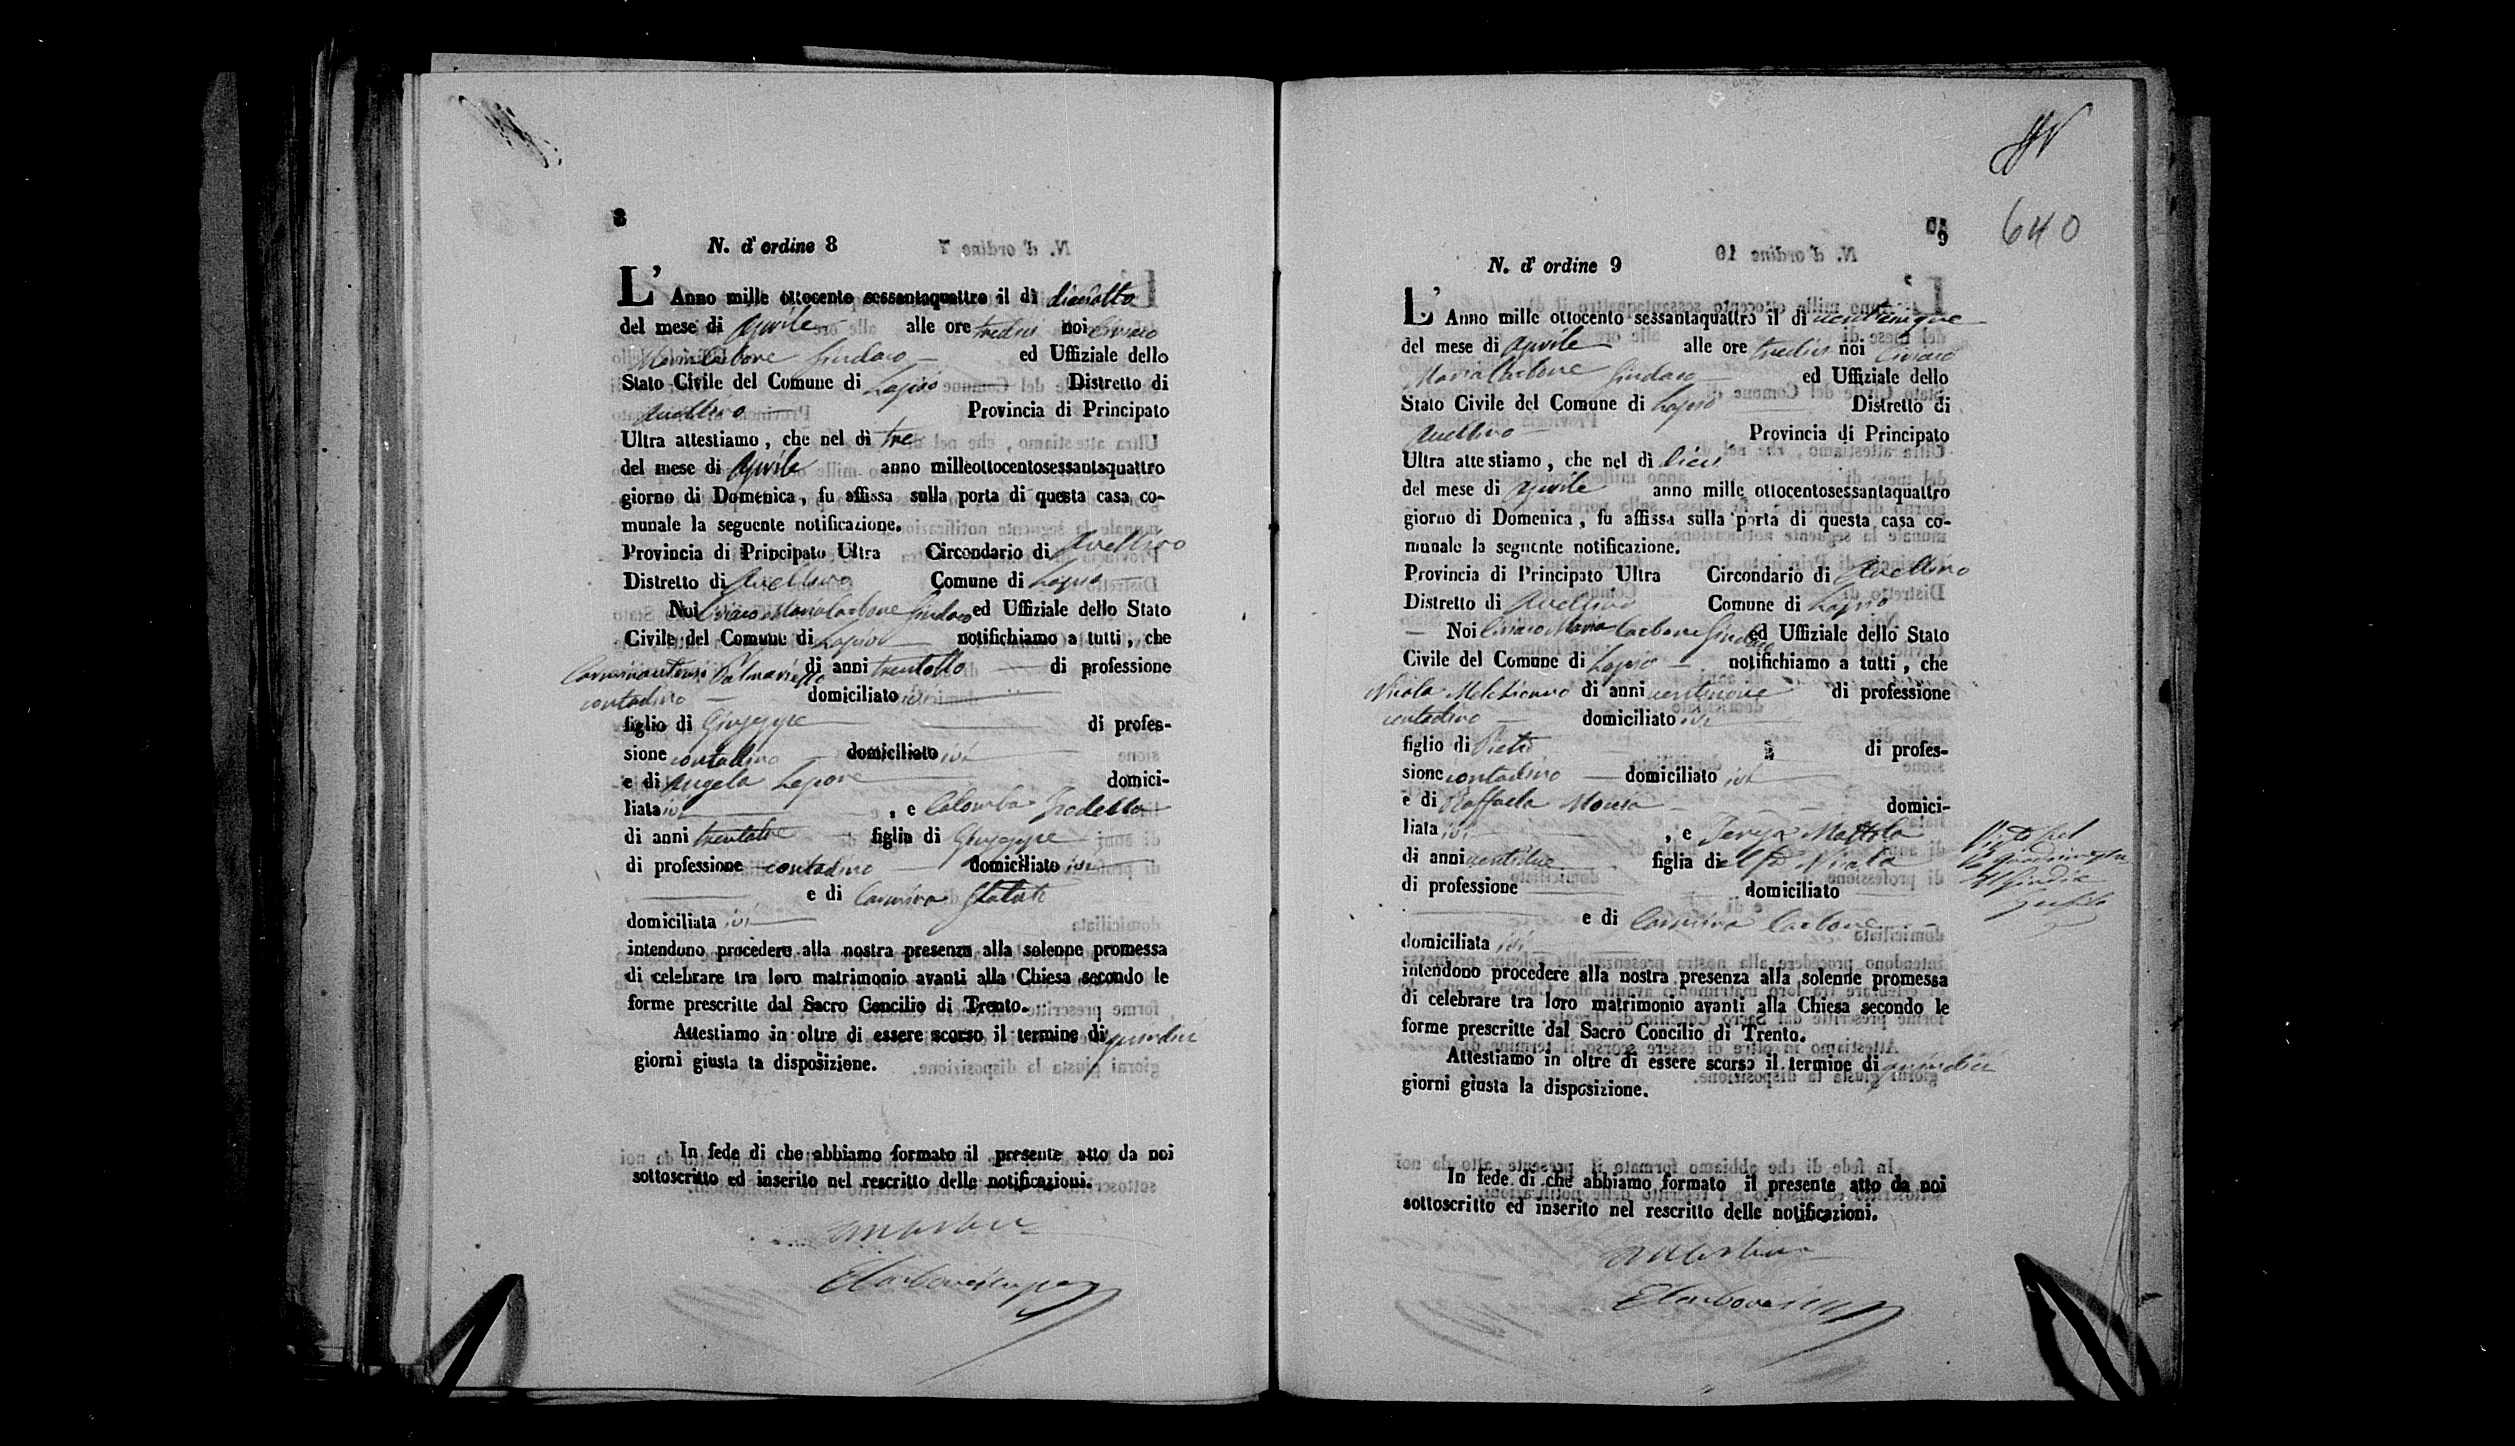 8
N. d' ordine 8
L' Anno mille ottocento sessantaquattro il dì diciotto
del mese di Aprile alle ore tredici noi Ciriaco
Maria Carbone Sindaco ed Uffiziale dello
Stato Civile del Comune di Lapio Distretto di
Avellino Provincia di Principato
Ultra attestiamo, che nel dì tre
del mese di Aprile anno milleottocentosessantaquattro
giorno di Domenica, fu affissa sulla porta di questa casa co-
munale la seguente notificazione.
Provincia di Principato Ultra Circondario di Avellino
Distretto di Avellino Comune di Lapio
Noi Ciriaco Maria Carbone Sindaco ed Uffiziale dello Stato
Civile del Comune di Lapio notifichiamo a tutti, che
di anni trentotto di professione
contadino domiciliato ivi
figlio di Giuseppe di profes-
sione contadino domiciliato ivi
e di Angela Lepore domici-
liata ivi , e Colomba
di anni trentatre figlia di Giuseppe
di professione contadino domiciliato ivi
e di Carmina
domiciliata ivi
intendono procedere alla nostra presenza alla solenne promessa
di celebrare tra loro matrimonio avanti alla Chiesa secondo le
forme prescritte dal Sacro Concilio di Trento.
Attestiamo in oltre di essere scorso il termine di quindici
giorni giusta ta disposizione.
In fede di che abbiamo formato il presente atto da noi
sottoscritto ed inserito nel rescritto delle notificazioni.
640
9
N. d' ordine 9
L' Anno mille ottocento sessantaquattro il dì venticinque
del mese di Aprile alle ore tredici noi Ciriaco
Maria Carbone Sindaco ed Uffiziale dello
Stato Civile del Comune di Lapio Distretto di
Avellino Provincia di Principato
Ultra attestiamo, che nel dì dieci
del mese di Aprile anno mille ottocentosessantaquattro
giorno di Domenica, fu affissa sulla porta di questa casa co-
munale la seguente notificazione.
Provincia di Principato Ultra Circondario di Avellino
Distretto di Avellino Comune di Lapio
Noi Ciriaco Maria Carbone Sindaco ed Uffiziale dello Stato
Civile del Comune di Lapio notifichiamo a tutti, che
Nicola di anni ventinove di professione
contadino domiciliato ivi
figlio di Pietro di profes-
sione contadino domiciliato ivi
e di Raffaela domici-
liata ivi , e Teresa
di anni ventidue figlia di
di professione domiciliato
e di Carmina Carbone
domiciliata ivi
intendono procedere alla nostra presenza alla solenne promessa
di celebrare tra loro matrimonio avanti alla Chiesa secondo le
forme prescritte dal Sacro Concilio di Trento.
Attestiamo in oltre di essere scorso il termine di quindici
giorni giusta la disposizione.
In fede di che abbiamo formato il presente atto da noi
sottoscritto ed inserito nel rescritto delle notificazioni.